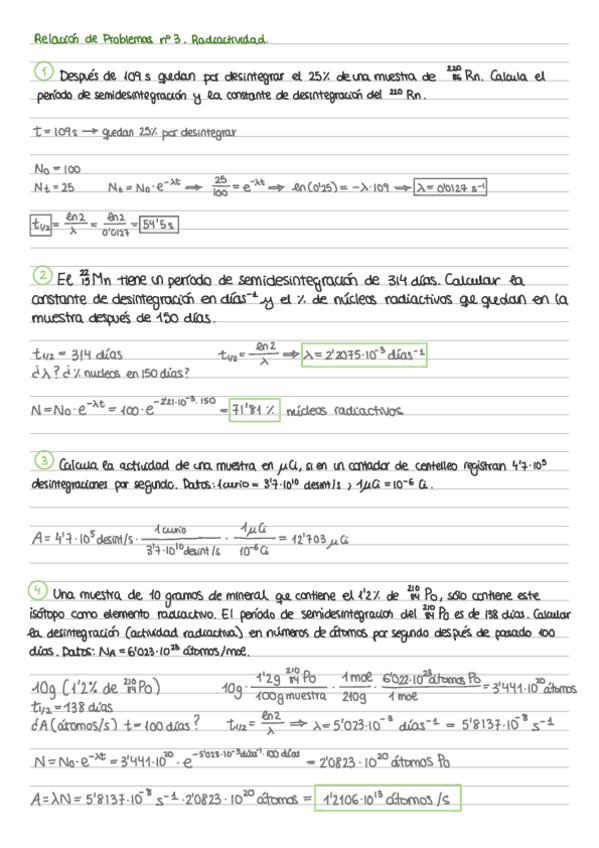 Relación de Problemas nº 3. Radioactividad.
1 Después de 109 s quedan por desintegrar el 25% de una muestra de ²²⁰₈₆Rn. Calcula el
período de semidesintegración y la constante de desintegración del ²²⁰Rn.
t = 109 s → quedan 25% por desintegrar
N₀ = 100
Nt = 25 Nt = N₀·e^-λt → 25/100 = e^-λt → ln(0'25) = -λ·109 → λ = 0'0127 s⁻¹
t1/2 = ln2/λ = ln2/0'0127 = 54'5 s
2 El Mn tiene un período de semidesintegración de 314 días. Calcular la
constante de desintegración en días⁻¹ y el % de núcleos radiactivos que quedan en la
muestra después de 150 días.
t1/2 = 314 días t1/2 = ln2/λ ⇒ λ = 2'2075·10⁻³ días⁻¹
¿λ? ¿% nucleos en 150 días?
N = N₀·e^-λt = 100·e^-2'21·10⁻³·150 = 71'81 % núcleos radiactivos
3 Calcula la actividad de una muestra en μCi, si en un contador de centelleo registran 4'7·10⁵
desintegraciones por segundo. Datos: 1 curio = 3'7·10¹⁰ desint/s ; 1μCi = 10⁻⁶ Ci.
A = 4'7·10⁵ desint/s · 1 curio/3'7·10¹⁰ desint/s · 1μCi/10⁻⁶ Ci = 12'703 μCi
4 Una muestra de 10 gramos de mineral que contiene el 1'2% de ²¹⁰₈₄Po, sólo contiene este
isótopo como elemento radiactivo. El período de semidesintegracion del ²¹⁰₈₄Po es de 138 días. Calcular
la desintegración (actividad radiactiva) en números de átomos por segundo después de pasado 100
días. Datos: NA = 6'023·10²³ átomos/mol.
10g (1'2% de ²¹⁰₈₄Po) 10g · 1'2g ²¹⁰₈₄Po/100g muestra · 1 mol/210g · 6'022·10²³ átomos Po/1 mol = 3'441·10²⁰ átomos
t1/2 = 138 días
¿A (átomos/s) t = 100 días? t1/2 = ln2/λ ⇒ λ = 5'023·10⁻³ días⁻¹ = 5'8137·10⁻⁸ s⁻¹
N = N₀·e^-λt = 3'441·10²⁰ · e^-5'023·10⁻³días⁻¹·100 días = 2'0823·10²⁰ átomos Po
A = λN = 5'8137·10⁻⁸ s⁻¹ · 2'0823·10²⁰ átomos = 1'2106·10¹³ átomos/s